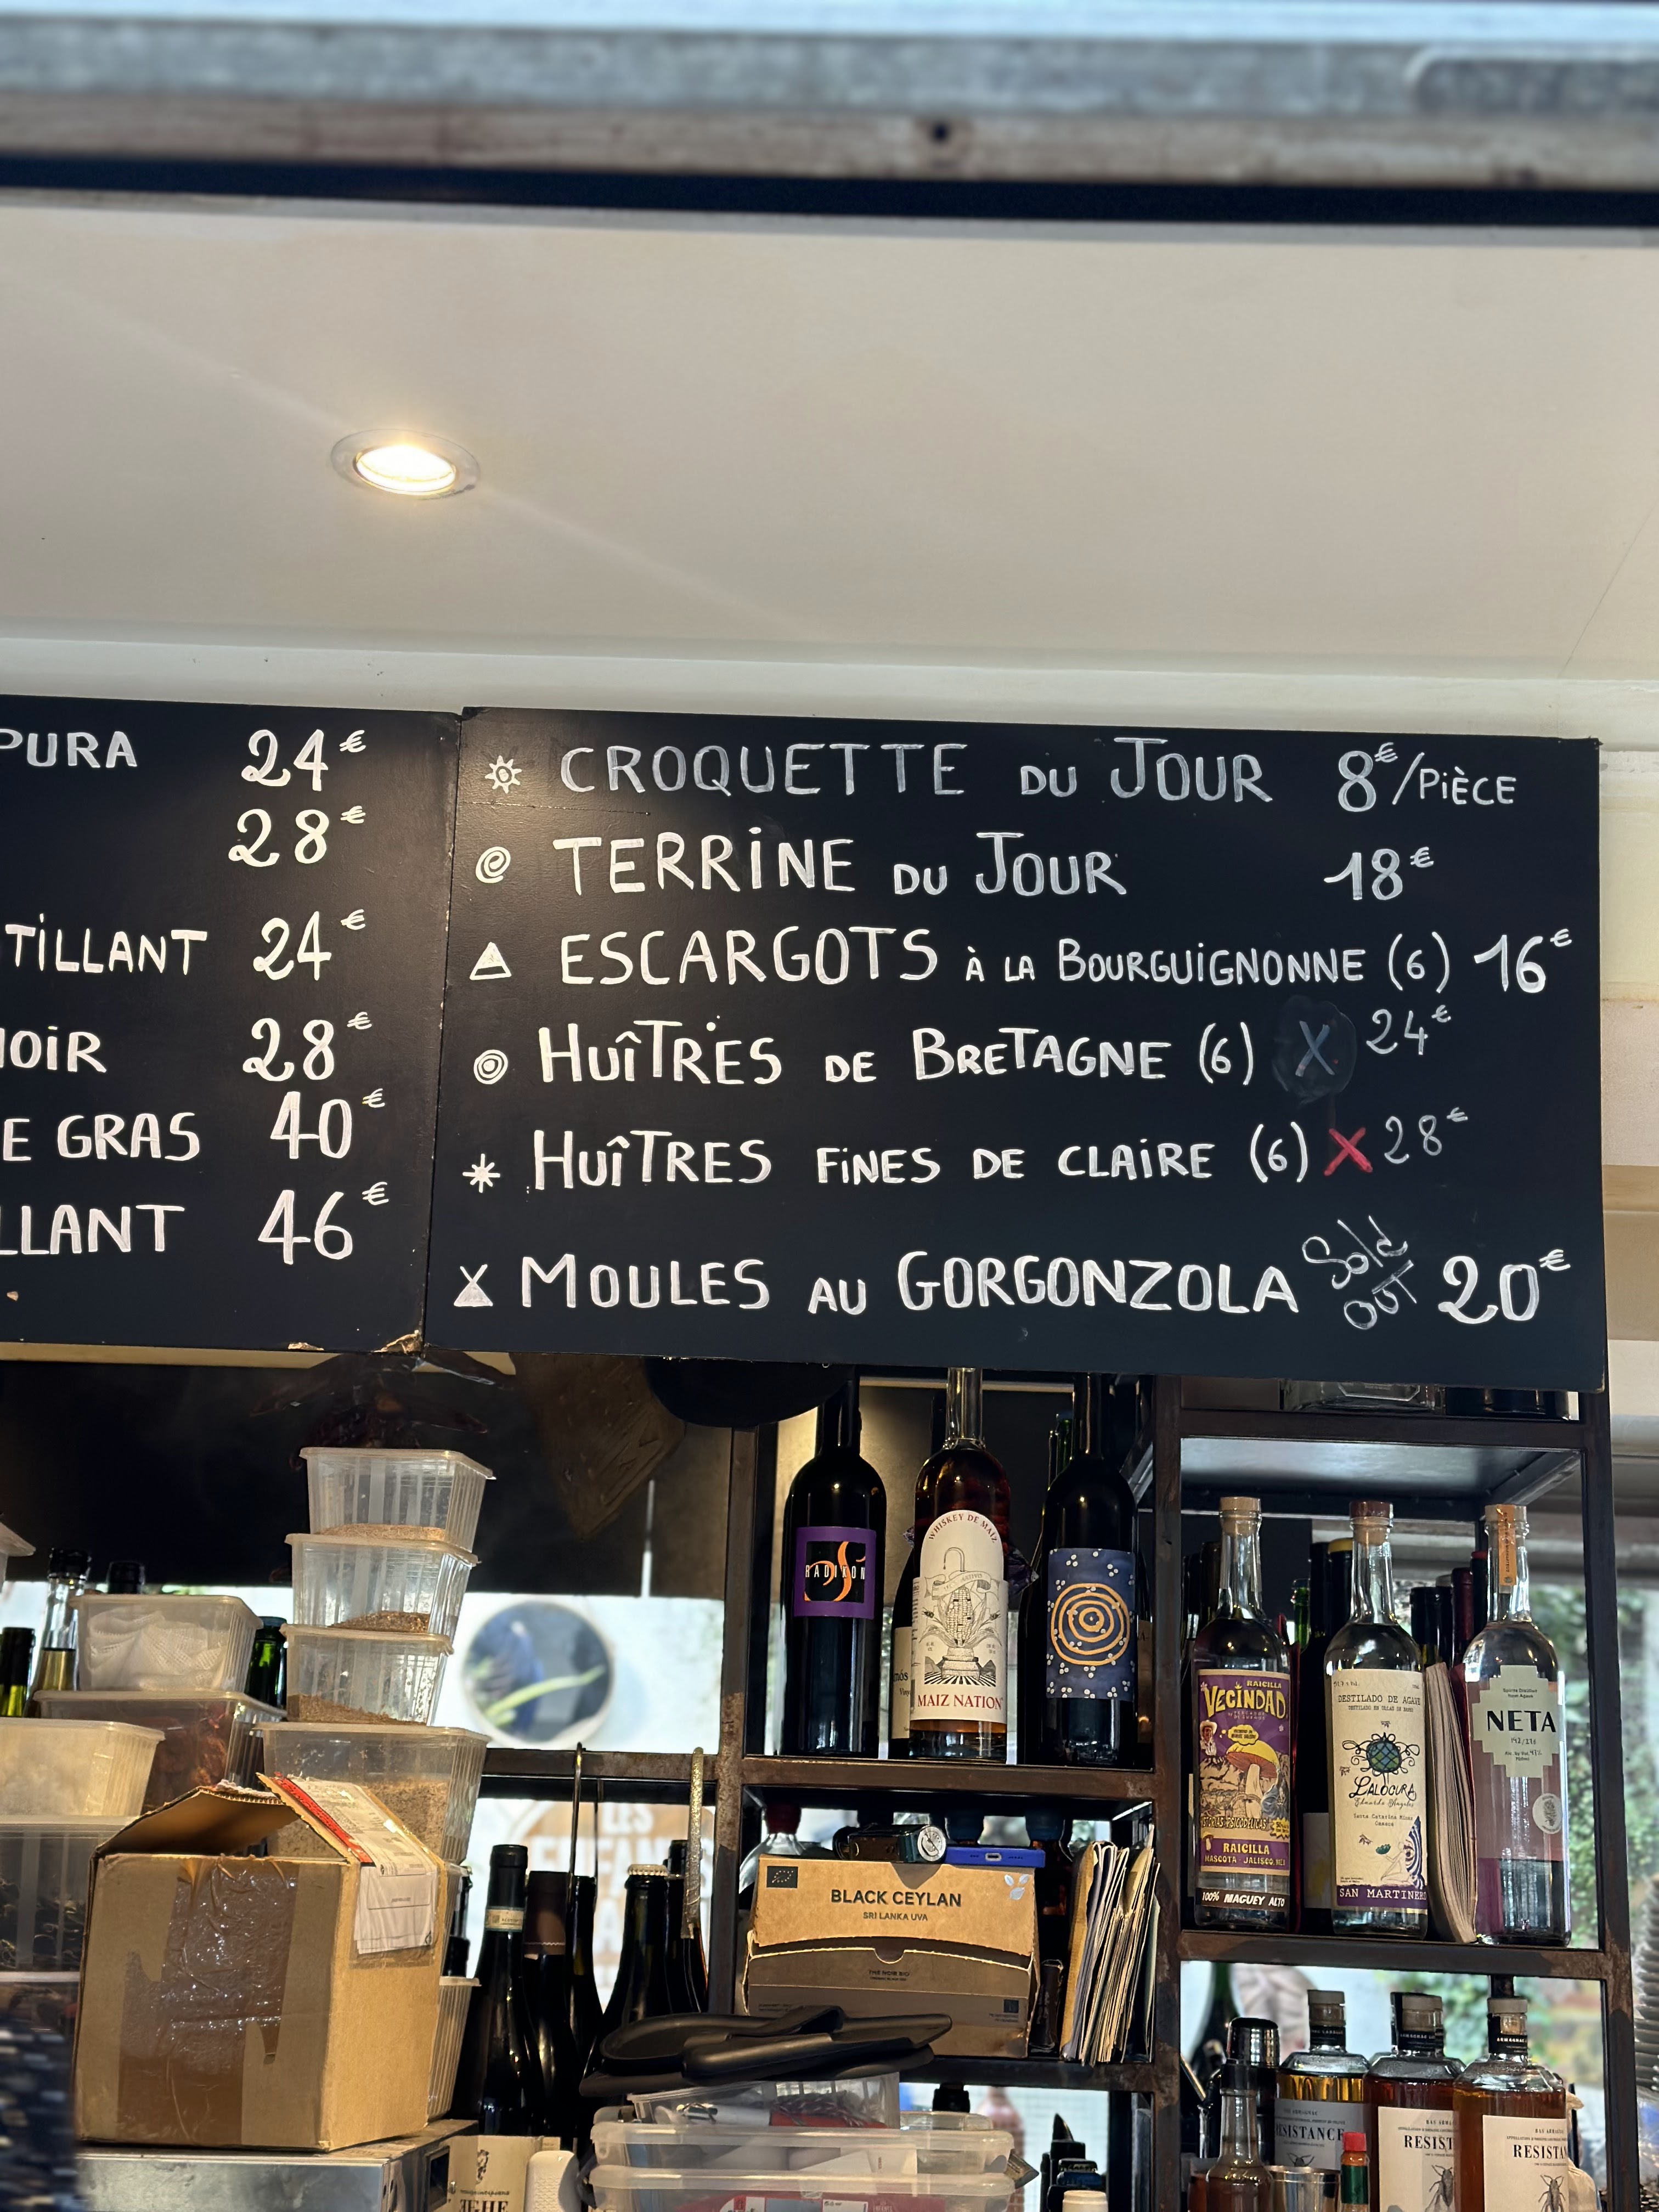 PURA 24€
28€
TILLANT 24€
NOIR 28€
E GRAS 40€
LLANT 46€
CROQUETTE DU JOUR 8€/PIÈCE
TERRINE DU JOUR 18€
ESCARGOTS À LA BOURGUIGNONNE (6) 16€
HUÎTRES DE BRETAGNE (6) X 24€
HUÎTRES FINES DE CLAIRE (6) X 28€
MOULES AU GORGONZOLA Sold OUT 20€
RADIKON
WHISKEY DE MAIZ
MAIZ NATION
RAICILLA
VECINDAD
RAICILLA
MASCOTA - JALISCO, MEX
100% MAGUEY ALTO
DESTILADO DE AGAVE
LALOCURA
Santa Catarina Minas
Oaxaca
SAN MARTINERO
NETA
BLACK CEYLAN
SRI LANKA UVA
THÉ NOIR BIO
RESISTANCE
RESIST
RESISTAN